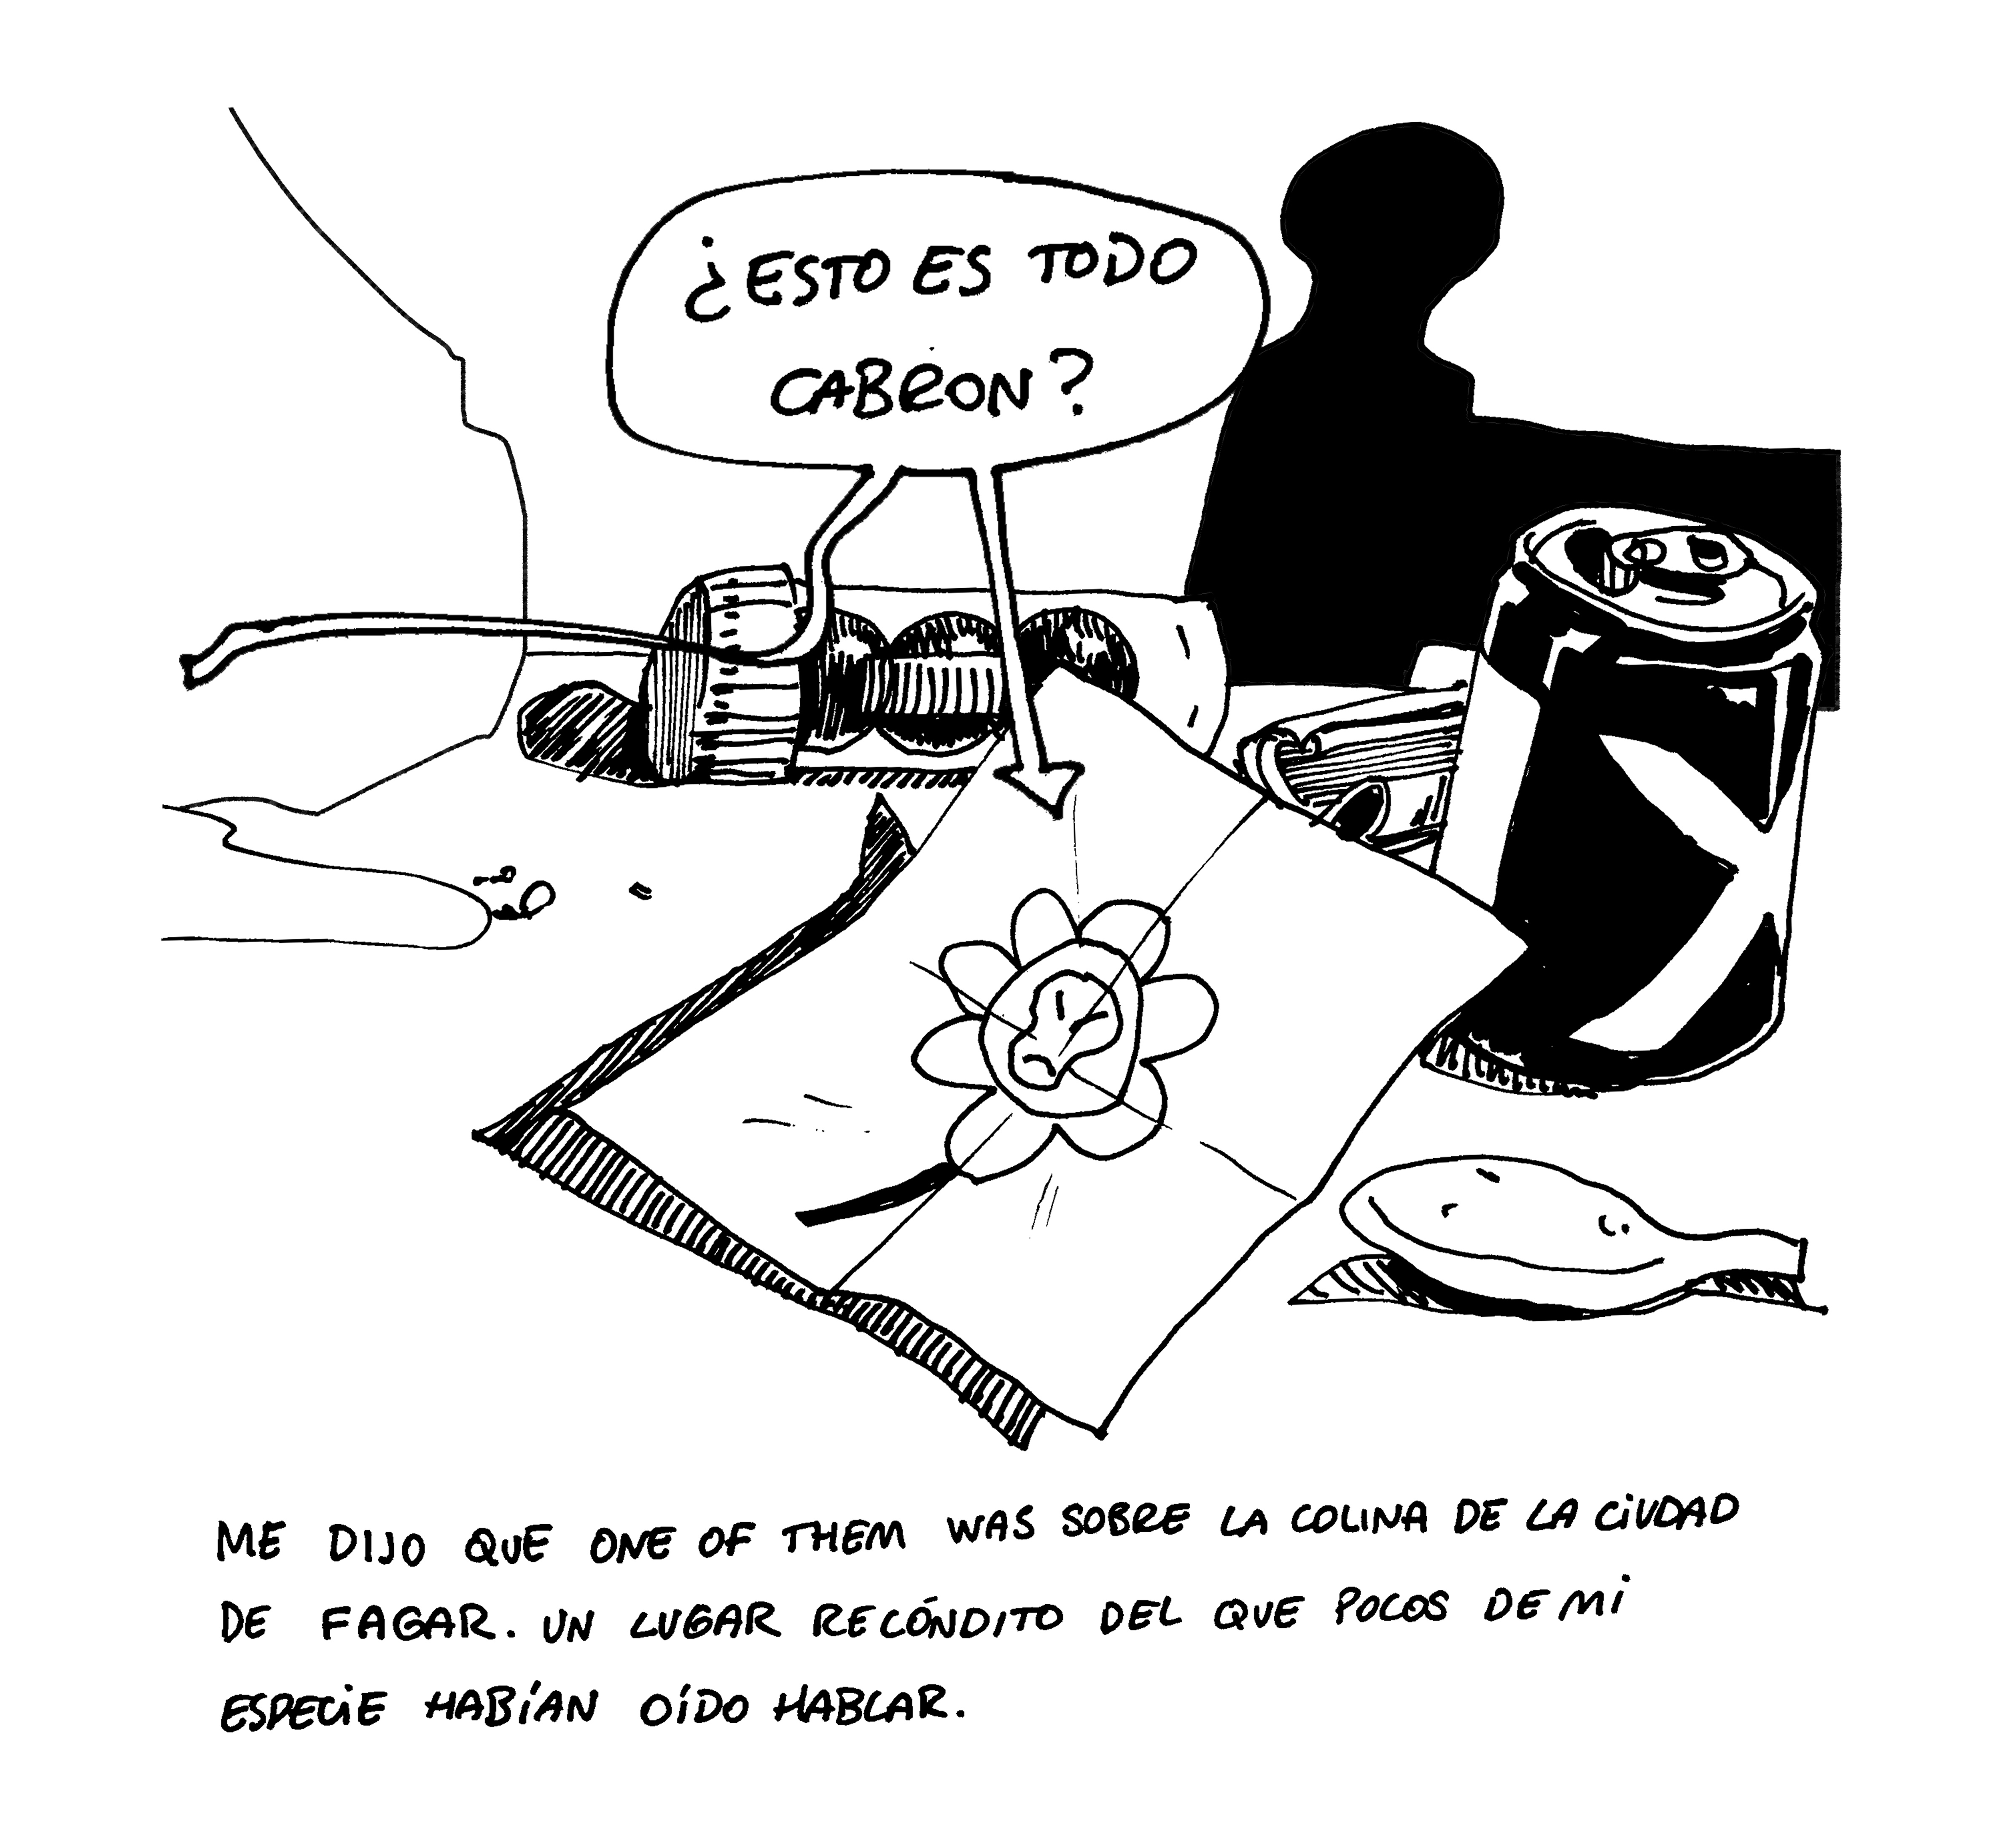 ¿ESTO ES TODO
CABRON?
ME DIJO QUE ONE OF THEM WAS SOBRE LA COLINA DE LA CIUDAD
DE FAGAR. UN LUGAR RECÓNDITO DEL QUE POCOS DE MI
ESPECIE HABÍAN OÍDO HABLAR.